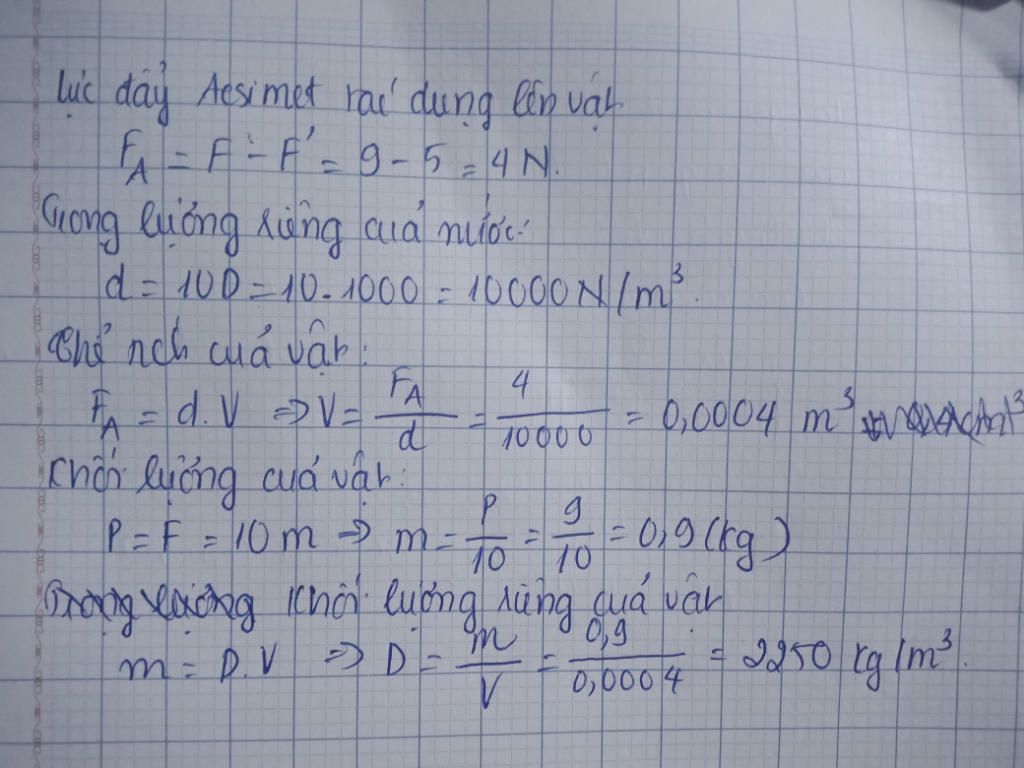 Lực đẩy Acsimet tác dụng lên vật
F_A = F - F' = 9 - 5 = 4N.
Trọng lượng riêng của nước:
d = 10D = 10.1000 = 10000N/m³.
Thể tích của vật:
F_A = d.V ⇒ V = F_A/d = 4/10000 = 0,0004 m³
Khối lượng của vật:
P = F = 10m ⇒ m = P/10 = 9/10 = 0,9(kg)
Khối lượng riêng của vật
m = D.V ⇒ D = m/V = 0,9/0,0004 = 2250 kg/m³.